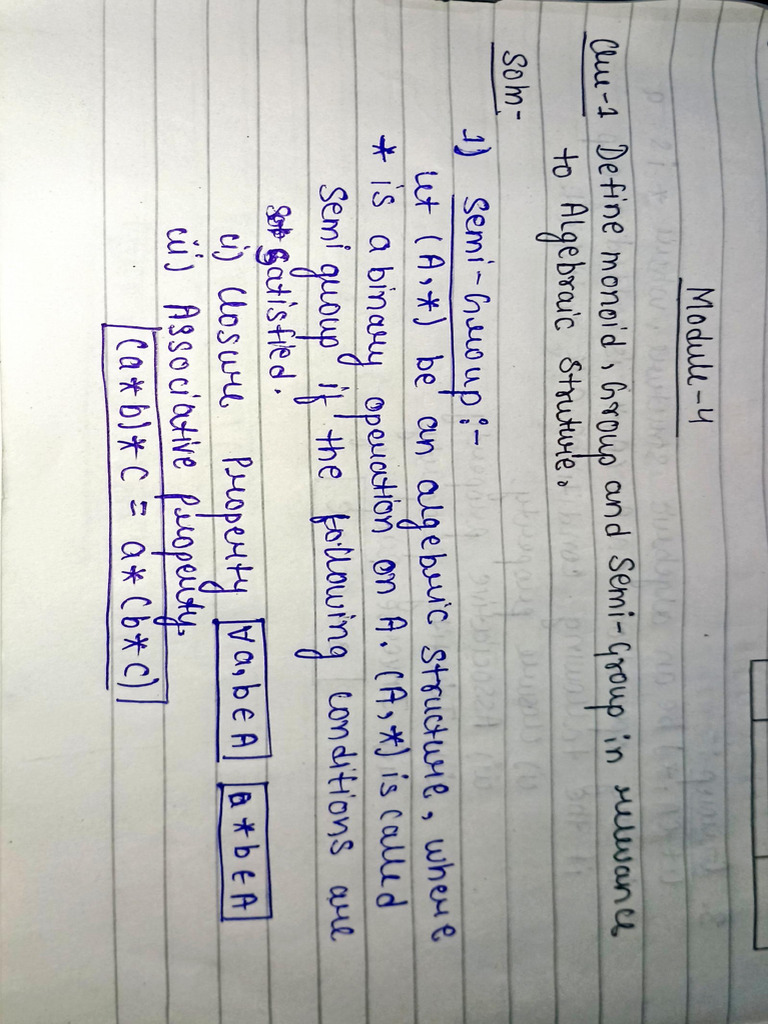 Module-4
Que-1 Define monoid, Group and Semi-Group in relevance
to Algebraic Struture.
Soln-
1) Semi-Group :-
Let (A,*) be an algebric structure, where
* is a binary operation on A. (A,*) is called
Semi group if the following conditions are
satisfied.
i) Closure Property ∀a,b∈A a*b∈A
ii) Associative Property.
(a*b)*c = a*(b*c)